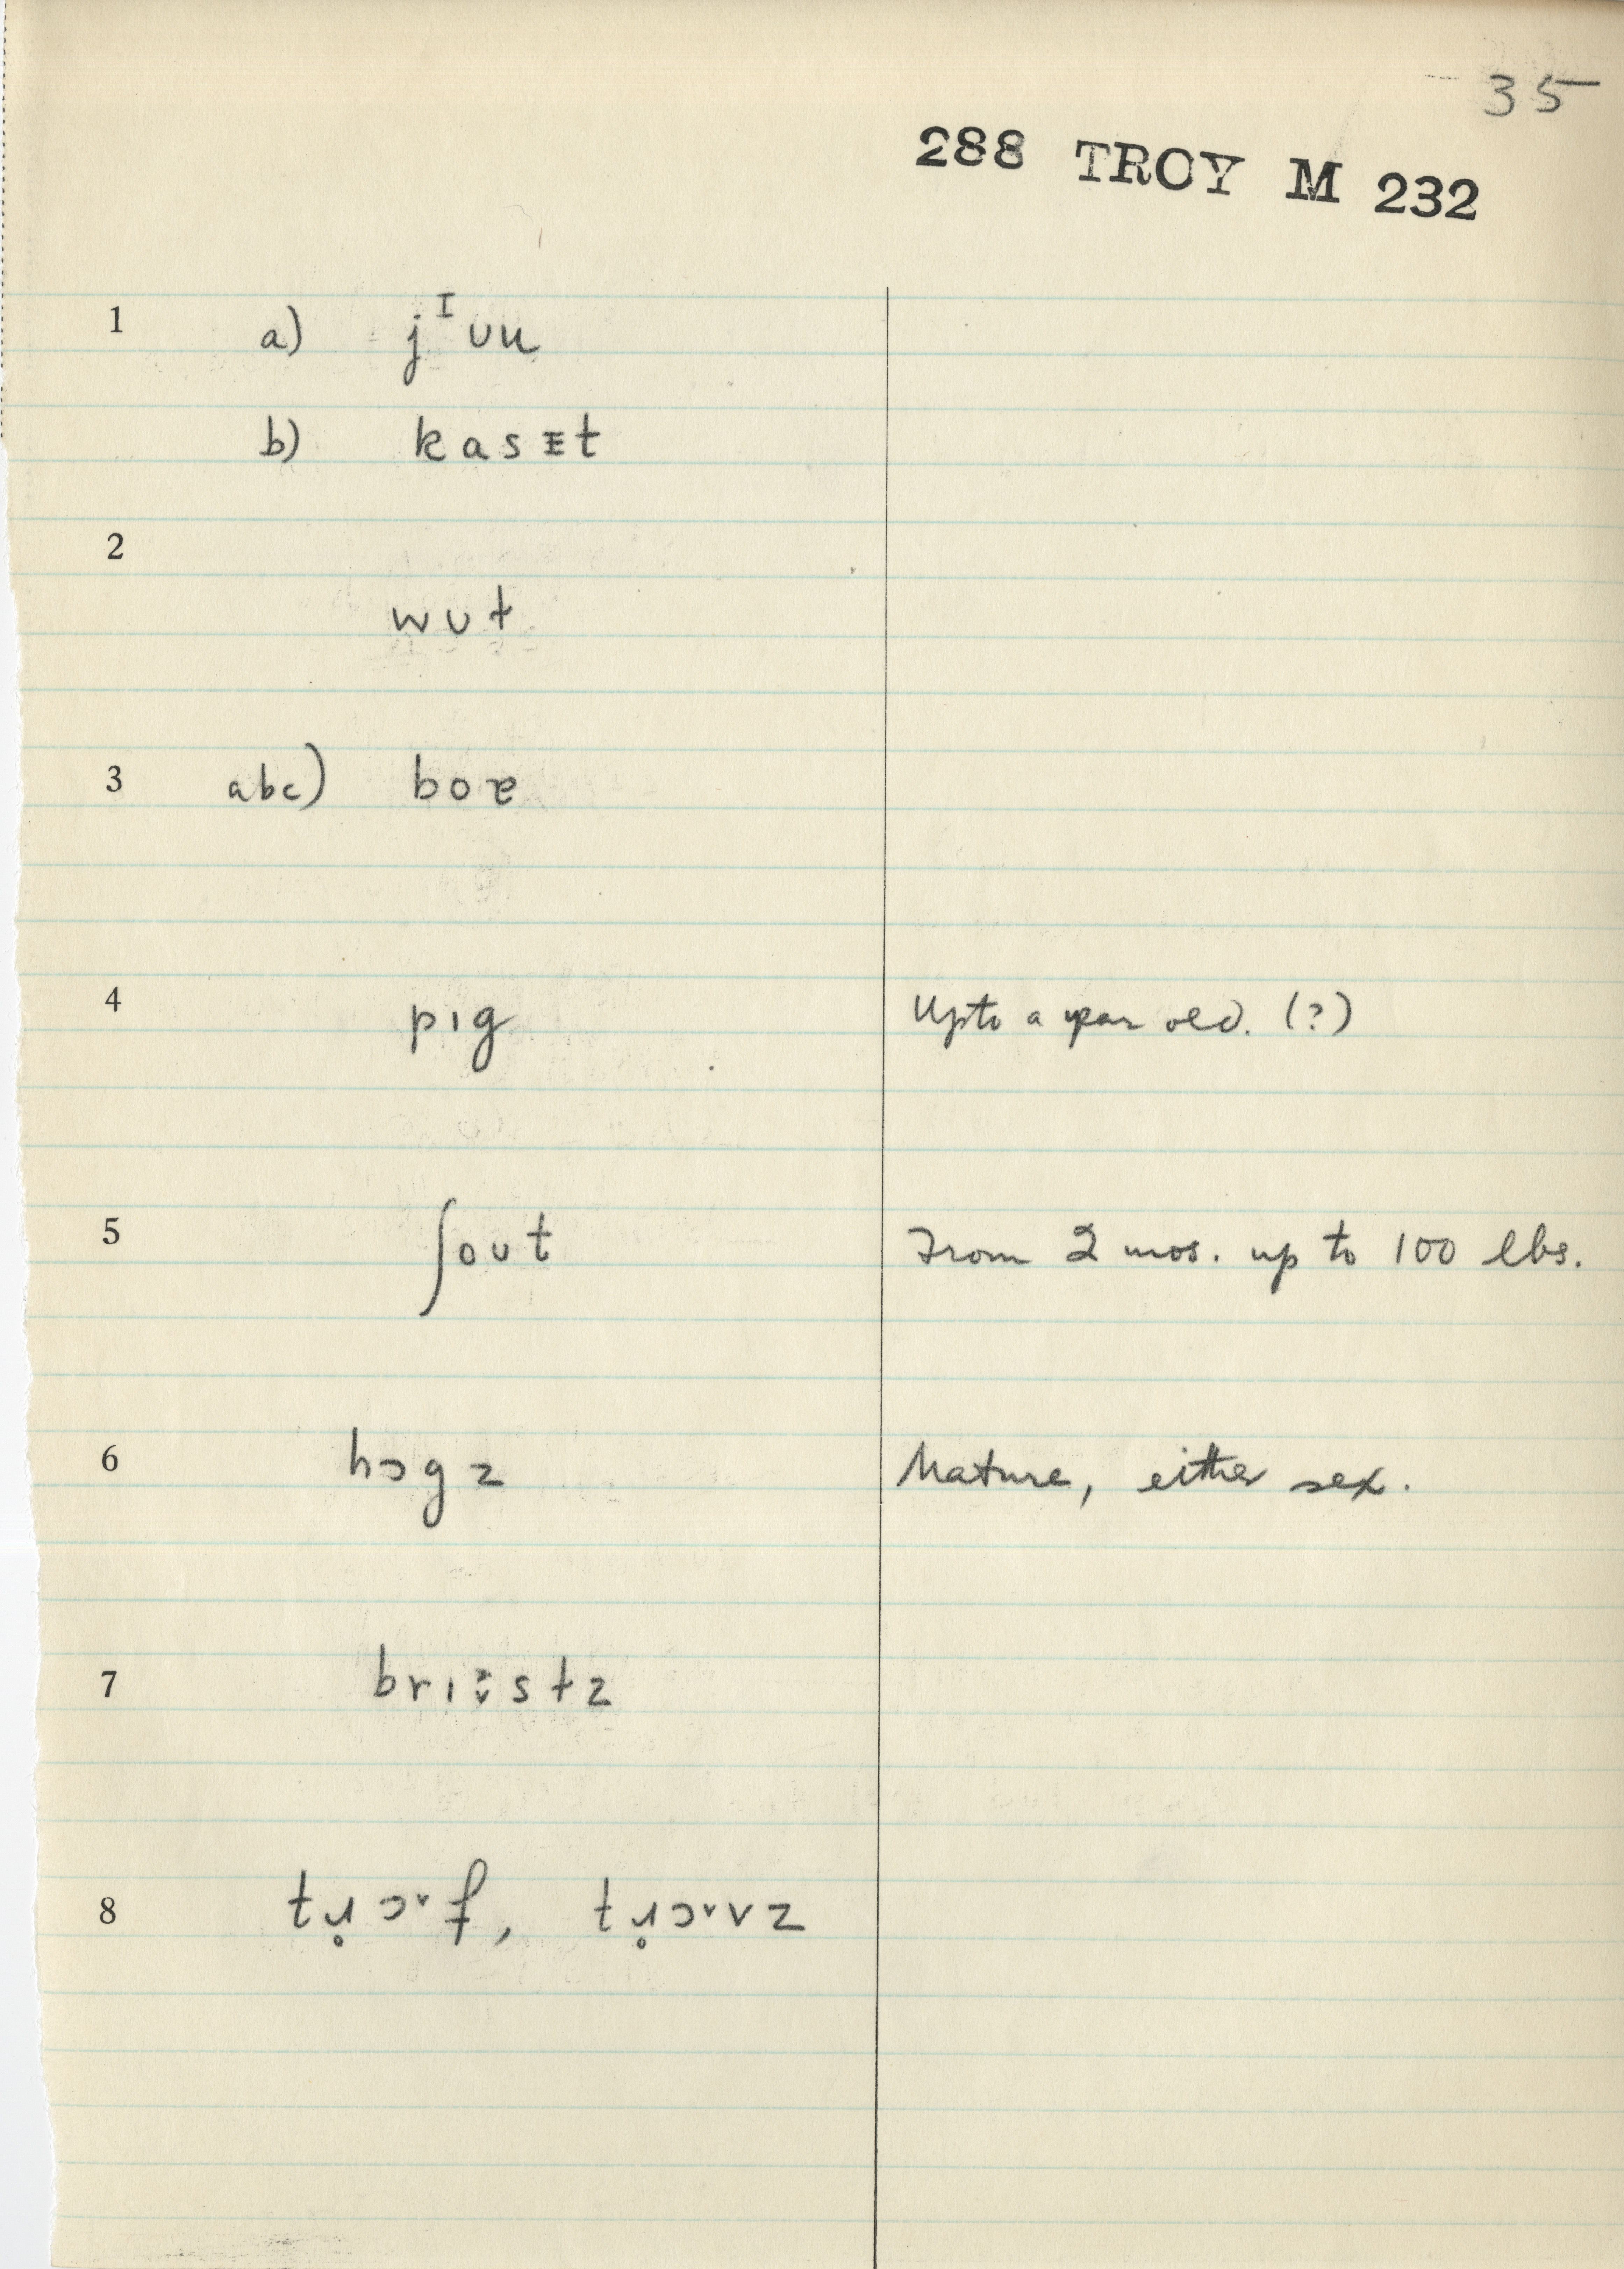 35
288 TROY M 232
1 a) jᴵuu
b) kasɪt
2
wut
3 abc) boɐ
4 pıg Up to a year old. (?)
5 ʃout From 2 mos. up to 100 lbs.
6 hɔgz Mature, either sex.
7 stz
8